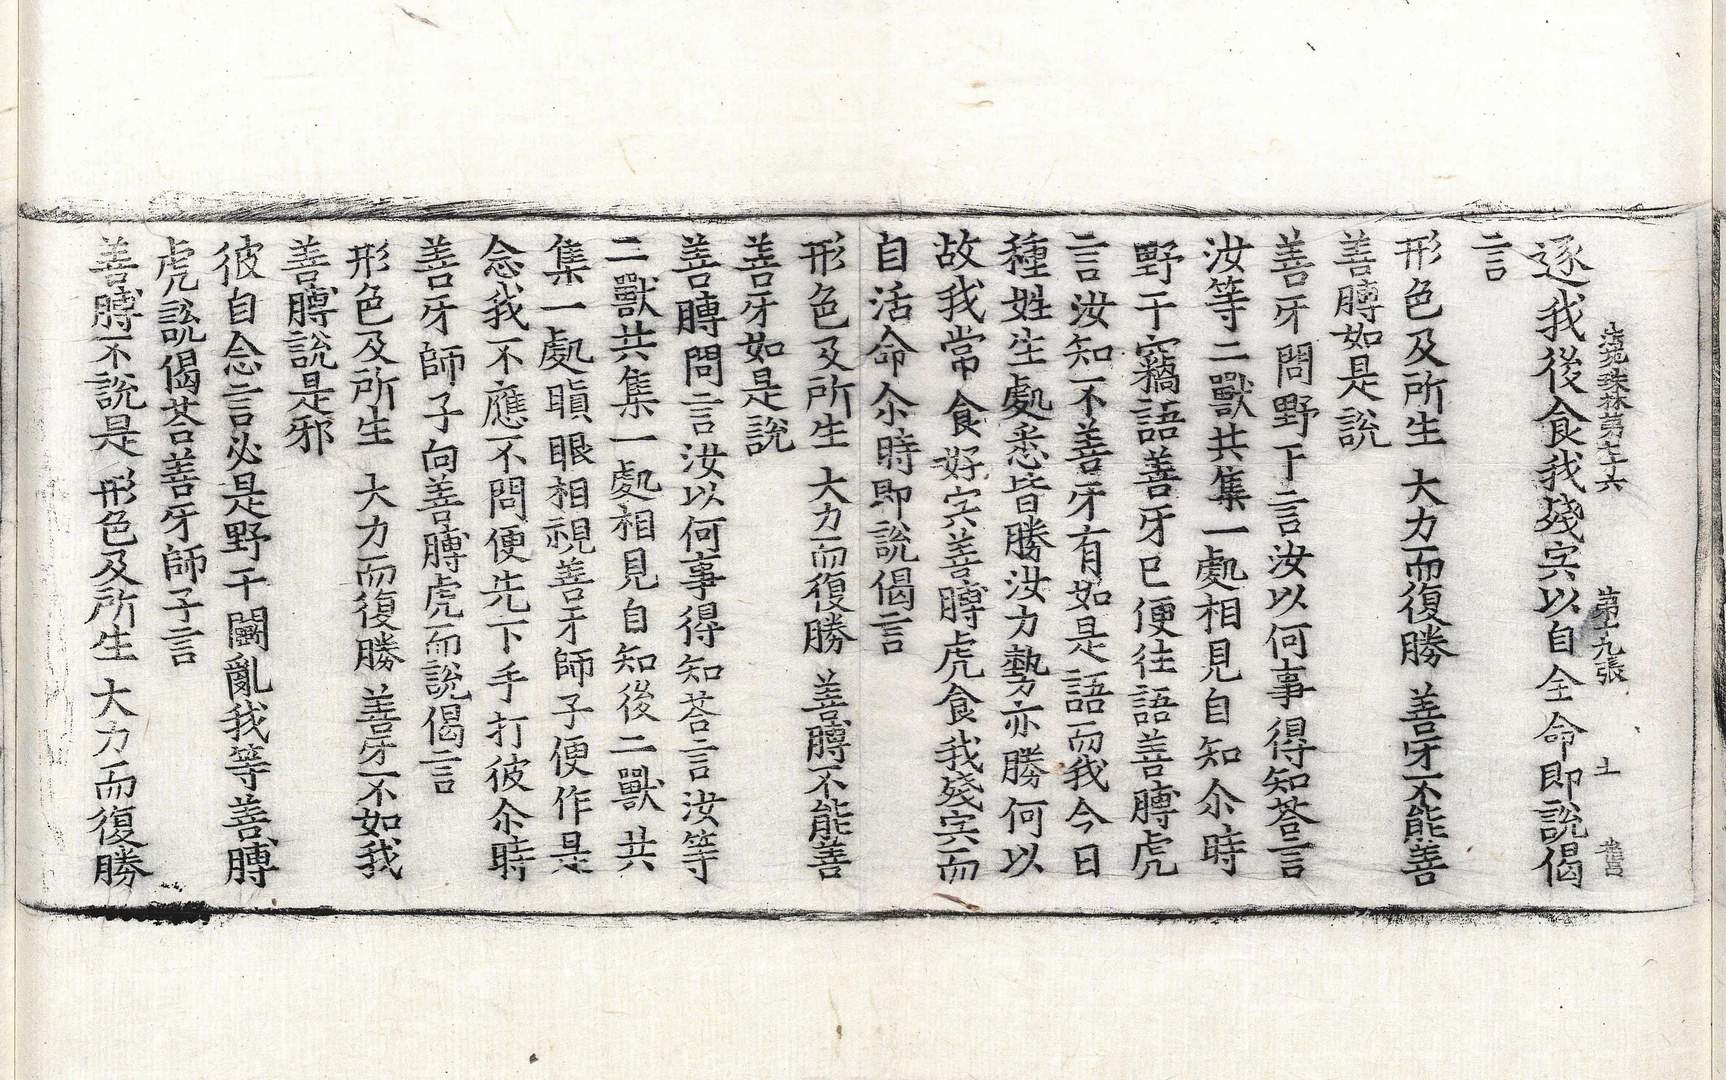 法苑珠林第七十六 第十九張 土
逐我後食我殘宍以自全命即說偈
言
形色及所生 大力而復勝 善牙不能善
善膊如是說
善牙問野干言汝以何事得知荅言
汝等二獸共集一處相見自知尒時
野干竊語善牙已便往語善膊虎
言汝知不善牙有如是語而我今日
種姓生處悉皆勝汝力勢亦勝何以
故我常食好宍善膊虎食我殘宍而
自活命尒時即說偈言
形色及所生 大力而復勝 善膊不能善
善牙如是說
善膊問言汝以何事得知荅言汝等
二獸共集一處相見自知後二獸共
集一處瞋眼相視善牙師子便作是
念我不應不問便先下手打彼尒時
善牙師子向善膊虎而說偈言
形色及所生 大力而復勝 善牙不如我
善膊說是邪
彼自念言必是野干鬪亂我等善膊
虎說偈荅善牙師子言
善膊不說是 形色及所生 大力而復勝